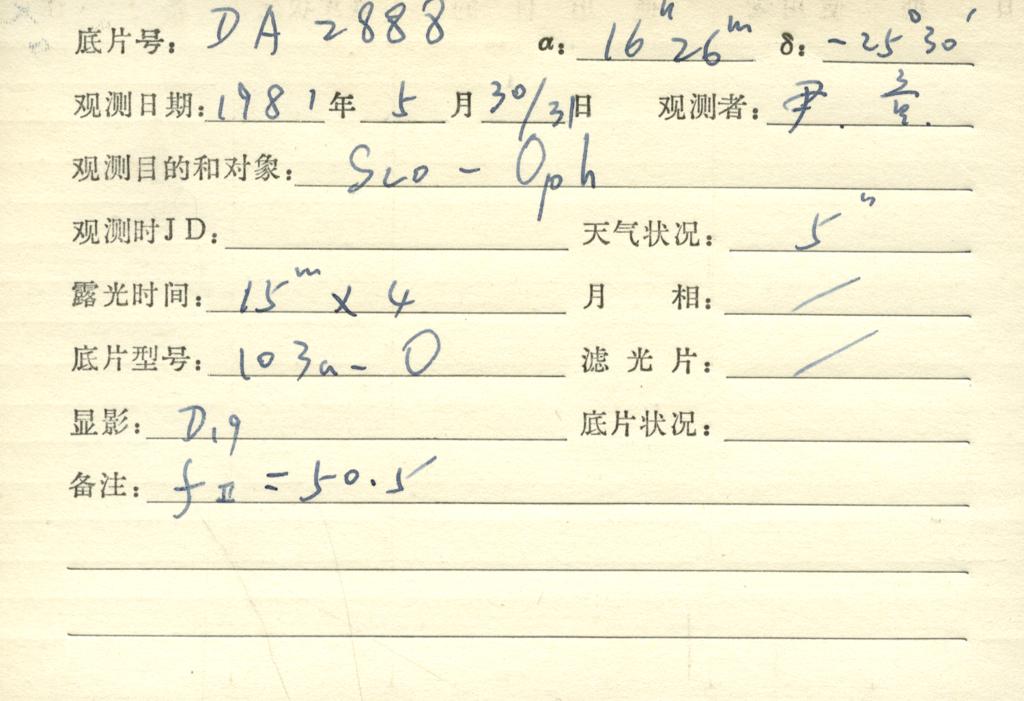 底片号: DA 2888 α: 16ʰ 26ᵐ δ: -25°30′
观测日期: 1981年 5月 30/31日 观测者: 尹.
观测目的和对象: Sco - Oph
观测时JD: 天气状况: 5"
露光时间: 15ᵐ x 4 月 相: /
底片型号: 103a-O 滤光片: /
显影: D19 底片状况:
备注: fⅡ = 50.5